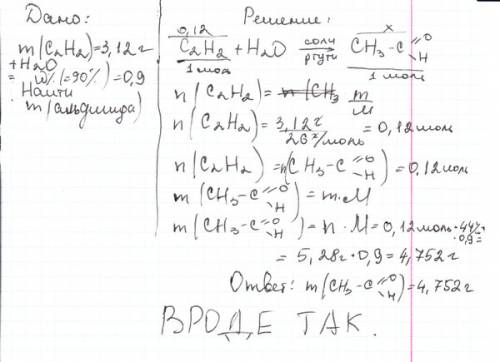 Дано:
m(C₂H₂)=3,12г
+H₂O
= W%(=90%)=0,9
Найти
m(альдегида)
Решение:
0,12 x
C₂H₂+H₂O соли ртути → CH₃-C=O H
1 моль 1 моль
n(C₂H₂)= n(CH₃ m/M
n(C₂H₂)=3,12г/26г/моль =0,12моль
n(C₂H₂)=n(CH₃-C=O H)=0,12моль
m(CH₃-C=O H)=m·M
m(CH₃-C=O H)=n·M=0,12моль·44г/
·0,9=
=5,28г·0,9=4,752г
Ответ: m(CH₃-C=O H)=4,752г
ВРОДЕ ТАК.